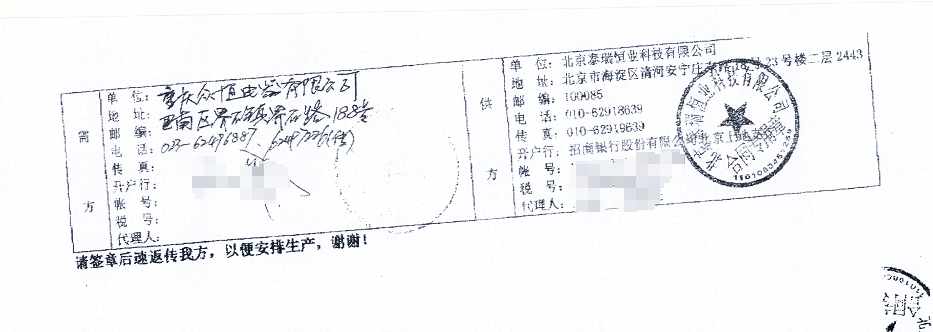 需方
单 位: 重庆众恒电器有限公司
地 址: 巴南区界石镇界石路188号
邮 编:
电 话: 023-62496887
传 真:
开户行:
帐 号:
税 号:
代理人:
供方
单 位: 北京泰瑞恒业科技有限公司
地 址: 北京市海淀区清河安宁庄 23号楼二层2443
邮 编: 100085
电 话: 010-62918639
传 真: 010-62919639
开户行: 招商银行股份有限公司北京
帐 号:
税 号:
代理人:
恒业科技有限公司
合同
请签章后速返传我方，以便安排生产，谢谢！